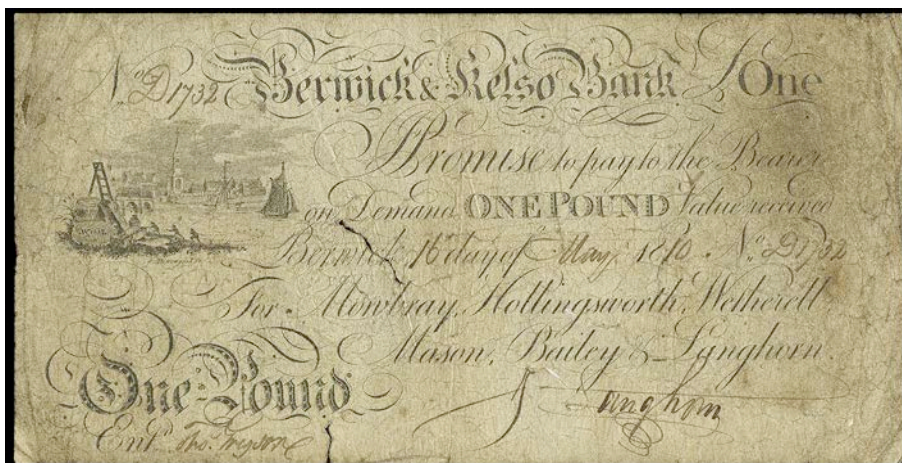 No. D1732 Berwick & Kelso Bank £One
I Promise to pay to the Bearer
on Demand ONE POUND Value received
Berwick 16 day of May 1810 . No. D1732
For Mowbray, Hollingsworth, Wetherell
Mason, Bailey & Langhorn.
One Pound
Langhorn
Entd. Thos.